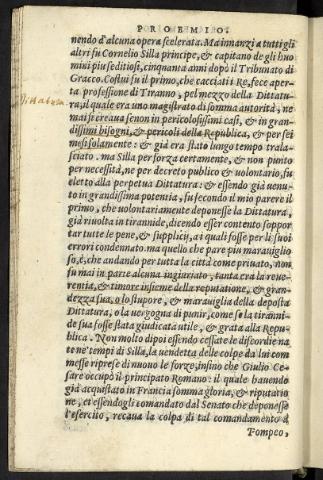 PROEMIO.
nendo d'alcuna opera scelerata. Ma inanzi a tutti gli
altri fu Cornelio Silla principe, & capitano de gli huo
mini piu seditiosi, cinquanta anni dopò il Tribunato di
Gracco. Costui fu il primo, che cacciati i Re, fece aper-
ta professione di Tiranno, pel mezzo della Dittatu-
ra, il quale era uno magistrato di somma autorità, ne
mai si creaua se non in pericolosissimi casi, & in gran-
dissimi bisogni, & pericoli della Republica, & per sei
mesi solamente: & già era stato lungo tempo trala-
sciato. ma Silla per forza certamente, & non punto
per necessità, ne per decreto publico & uolontario, fu
eletto alla perpetua Dittatura: & essendo già uenu-
to in grandissima potentia, fu secondo il mio parere il
primo, che uolontariamente deponesse la Dittatura,
già riuolta in tirannide, dicendo esser contento soppor
tar tutte le pene, & supplicij, a i quali fosse per li suoi
errori condennato. ma quello che pare piu marauiglio
so, è, che andando per tutta la città come priuato, non
fu mai in parte alcuna ingiuriato, tanta era la reue-
rentia, & timore insieme della reputatione, & gran-
dezza sua, o lo stupore, & marauiglia della deposta
Dittatura, o la uergogna di punir, come se la tiranni-
de sua fosse stata giudicata utile, & grata alla Repu-
blica. Non molto dipoi essendo cessate le discordie na
te ne' tempi di Silla, la uendetta delle colpe da lui com
messe riprese di nuouo le forze, insino che Giulio Ce-
sare occupò il principato Romano: il quale hauendo
già acquistato in Francia somma gloria, & riputatio
ne, et essendogli comandato dal Senato che deponesse
l'esercito, recaua la colpa di tal comandamento à
Pompeo,